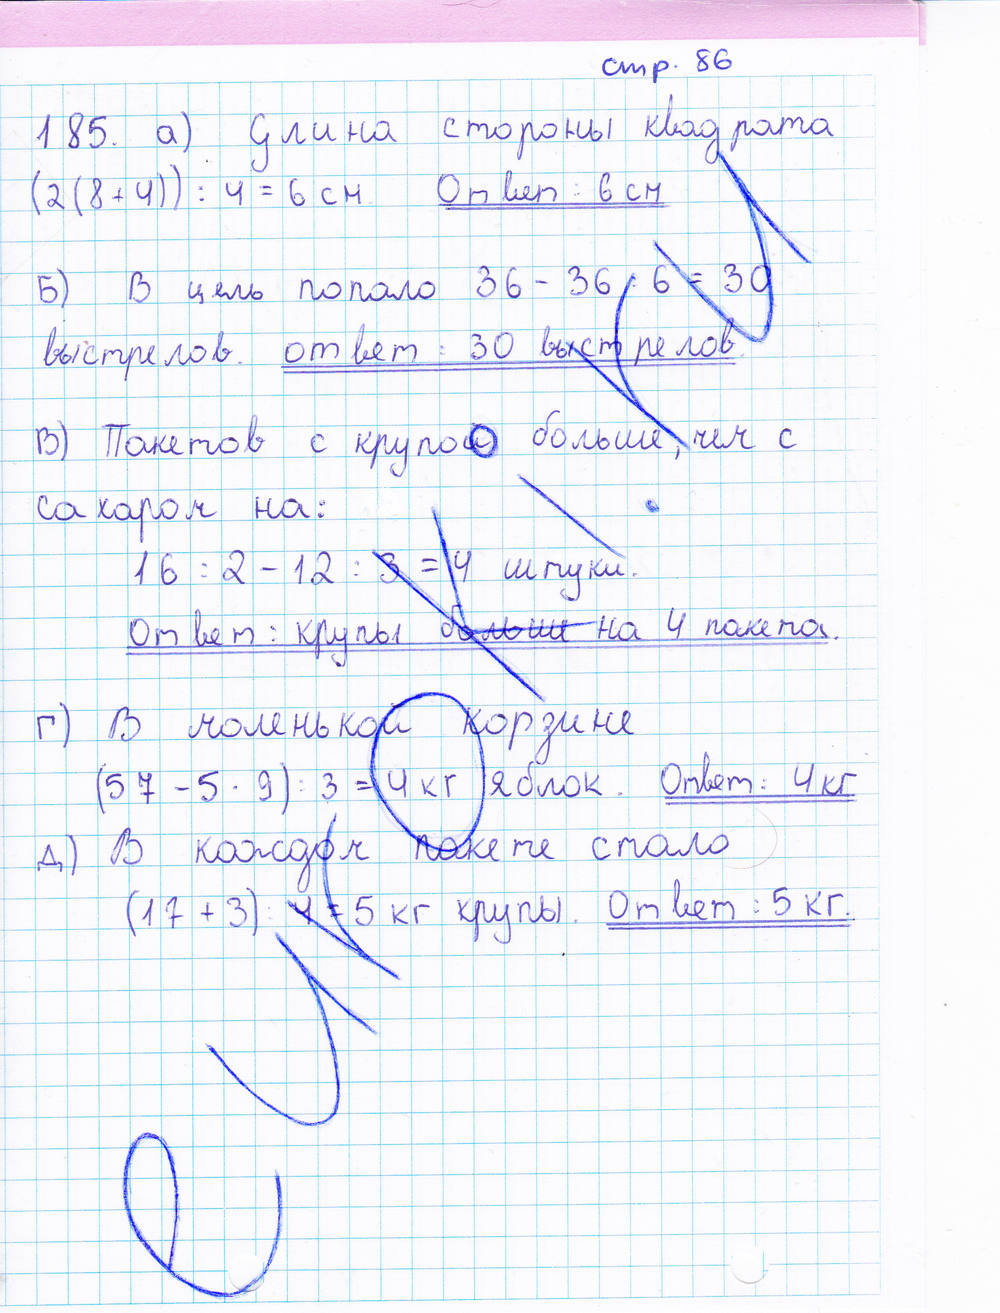 стр. 86
185. а) Длина стороны квадрата
(2(8+4)) : 4 = 6 см. Ответ : 6 см
Б) В цель попало 36 - 36 : 6 = 30
выстрелов. ответ : 30 выстрелов.
В) Пакетов с крупой больше, чем с
сахаром на:
16 : 2 - 12 : 3 = 4 штуки.
Ответ : крупы больше на 4 пакета.
Г) В маленькой корзине
(57 - 5 · 9) : 3 = 4 кг яблок. Ответ : 4 кг
Д) В каждом пакете стало
(17 + 3) : 4 = 5 кг крупы. Ответ : 5 кг.